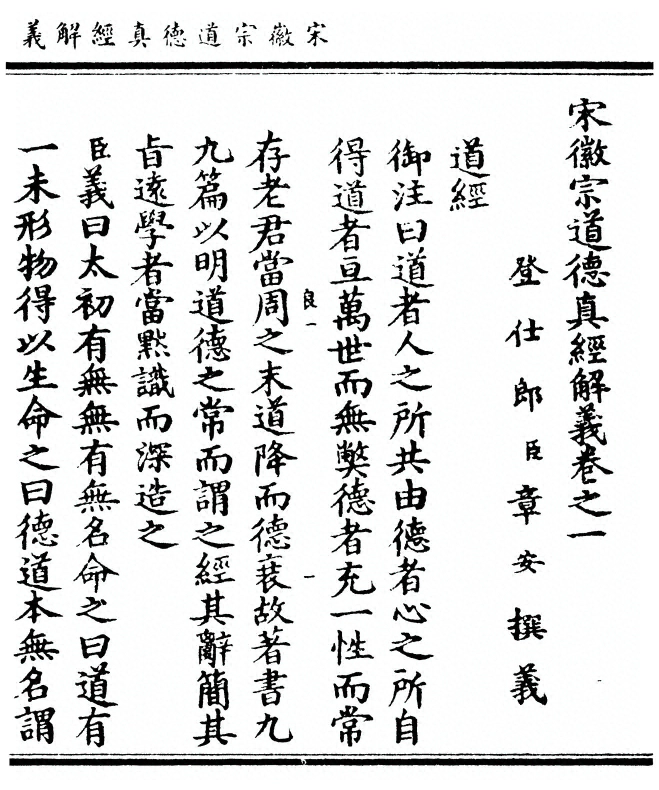 宋徽宗道德真經解義
宋徽宗道德真經解義卷之一
登仕郎臣章安撰義
道經
御注曰道者人之所共由德者心之所自
得道者亘萬世而無弊德者充一性而常
良一
一
存老君當周之末道降而德衰故著書九
九篇以明道德之常而謂之經其辭簡其
旨遠學者當黙識而深造之
臣義曰太初有無無有無名命之曰道有
一未形物得以生命之曰德道本無名謂